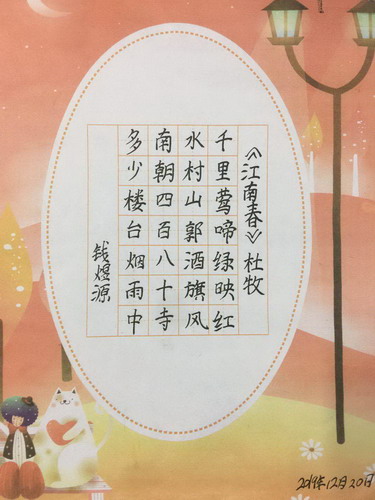 《江南春》杜牧
千里莺啼绿映红
水村山郭酒旗风
南朝四百八十寺
多少楼台烟雨中
钱煜源
2019年12月20日